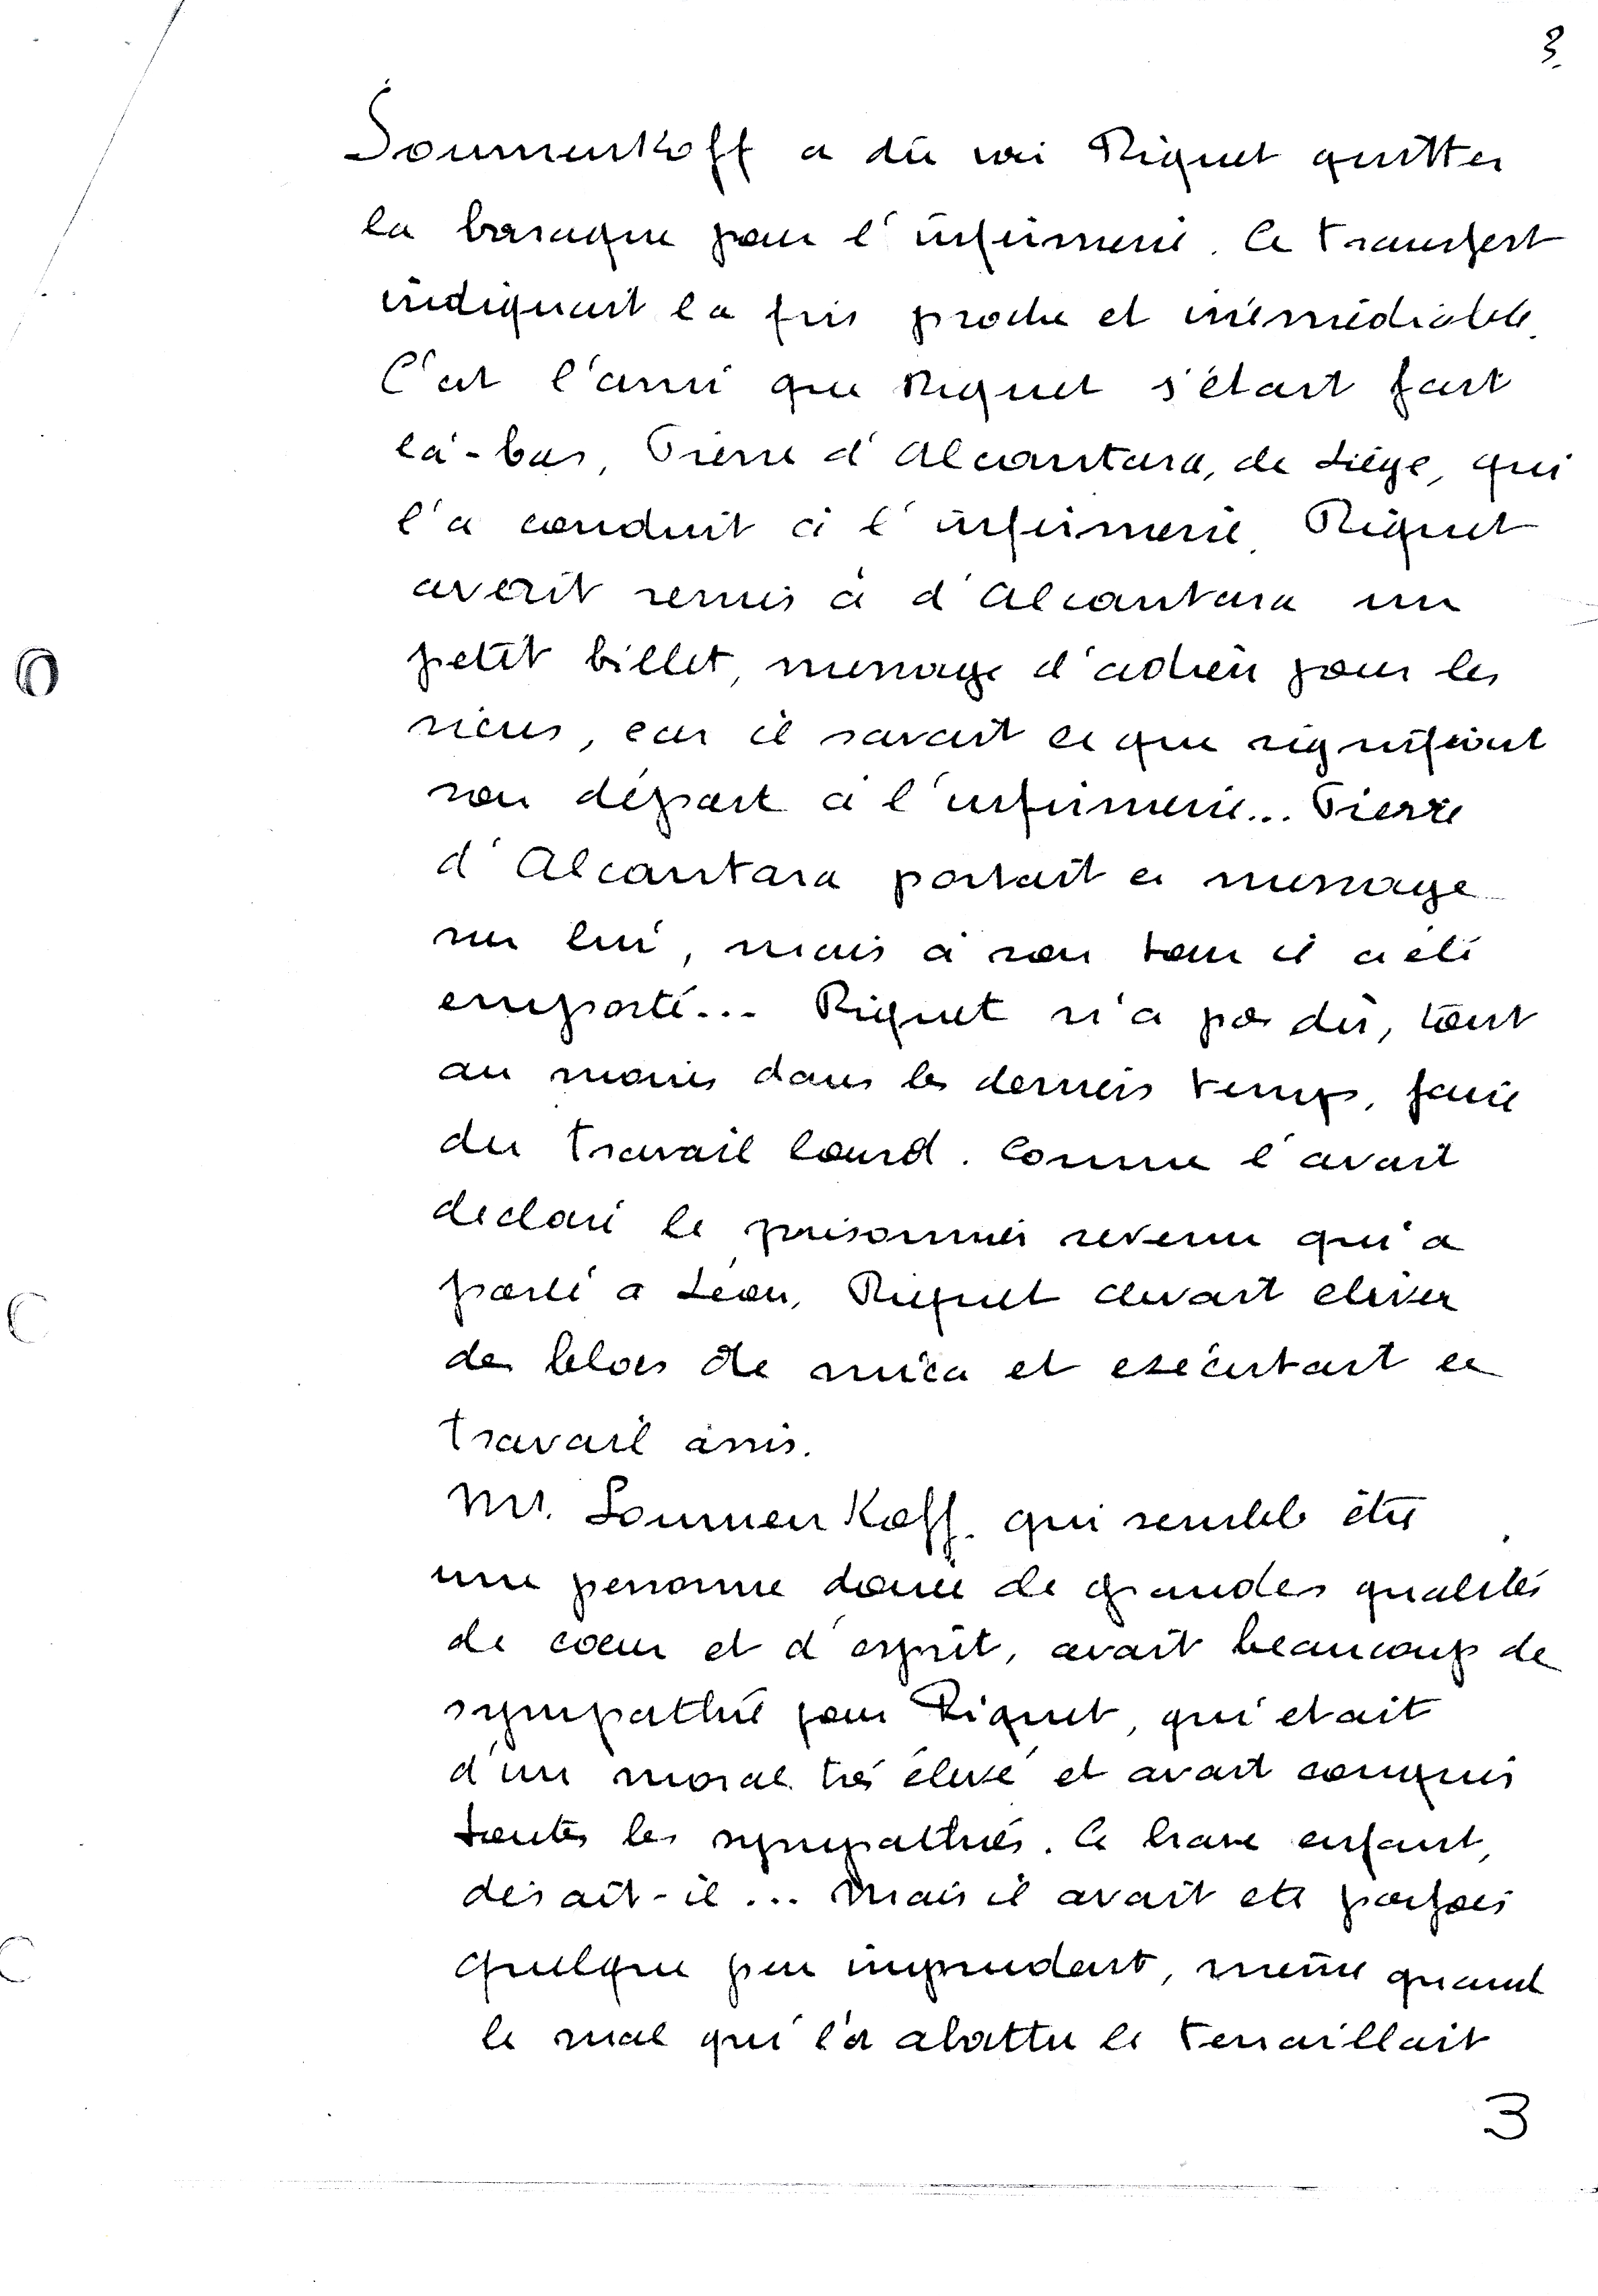 3.
Soumenkoff a dû voir Riquet quitter
la baraque pour l'infirmerie. Ce transfert
indiquait la fin proche et irrémédiable.
C'est l'ami que Riquet s'était fait
là-bas, Pierre d'Alcantara, de Liège, qui
l'a conduit à l'infirmerie. Riquet
avait remis à d'Alcantara un
petit billet, message d'adieu pour les
siens, car il savait ce que signifiait
son départ à l'infirmerie... Pierre
d'Alcantara portait ce message
sur lui, mais à son tour il a été
emporté... Riquet n'a pas dû, tout
au moins dans les derniers temps, faire
du travail lourd. Comme l'avait
declaré le prisonnier revenu qui a
parlé a Léon, Riquet devait cliver
des blocs de mica et exécutait ce
travail assis.
Mr. Soumenkoff. qui semble être
une personne douée de grandes qualités
de coeur et d'esprit, avait beaucoup de
sympathie pour Riquet, qui etait
d'un moral très élevé et avait conquis
toutes les sympathies. Ce brave enfant,
disait-il... Mais il avait été parfois
quelque peu imprudent, même quand
le mal qui l'a abattu le tenaillait
3